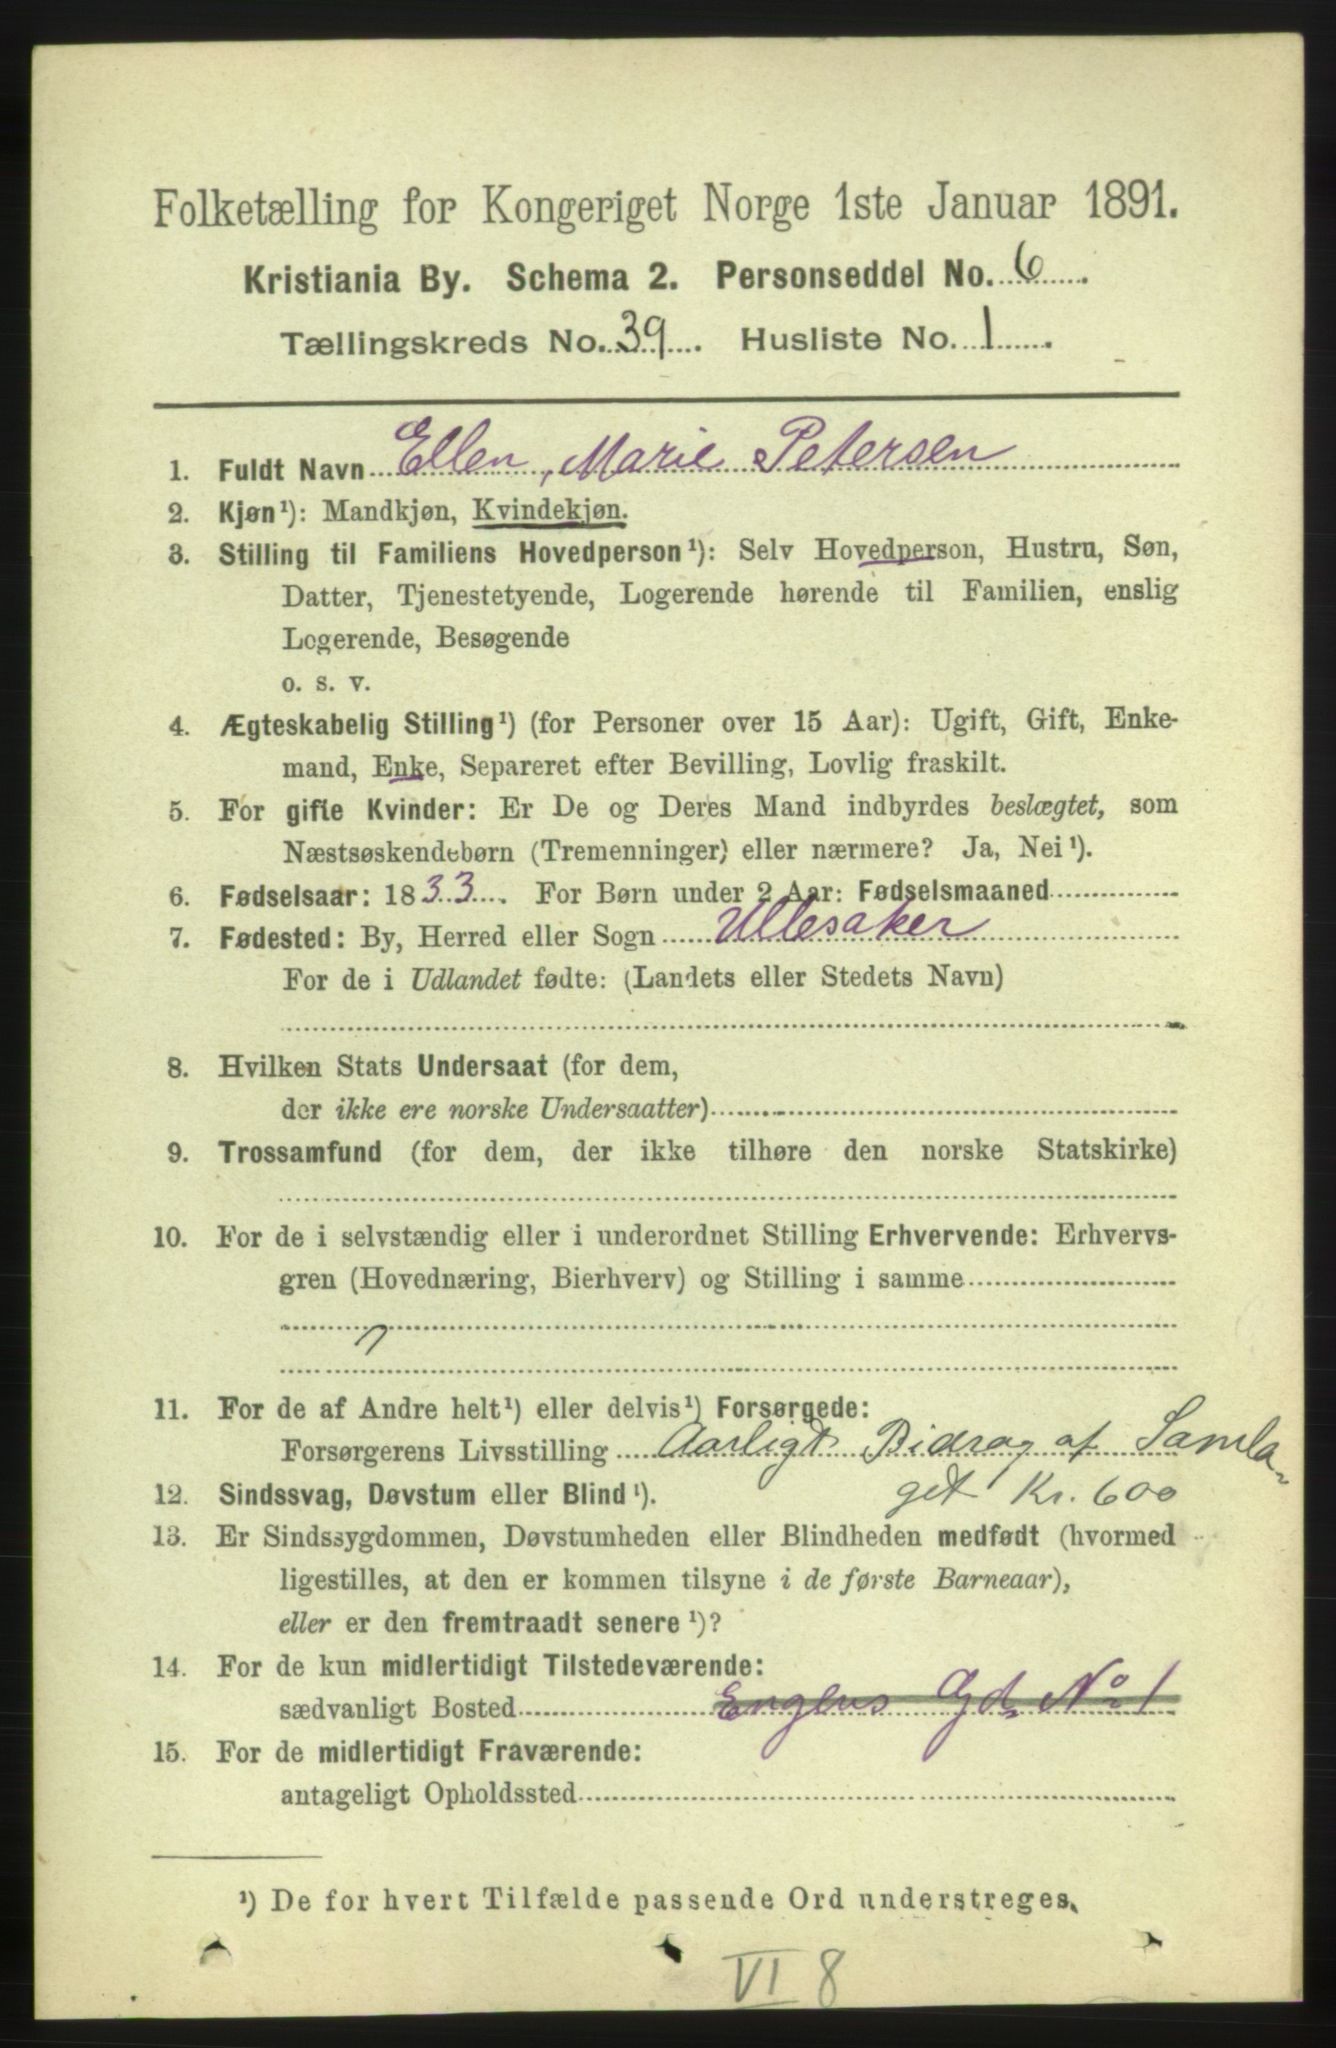 Folketælling for Kongeriget Norge 1ste Januar 1891.
Kristiania By. Schema 2. Personseddel No. 6
Tællingskreds No. 39. Husliste No. 1.
1. Fuldt Navn Ellen, Marie Petersen
2. Kjøn¹): Mandkjøn, Kvindekjøn.
3. Stilling til Familiens Hovedperson¹): Selv Hovedperson, Hustru, Søn,
Datter, Tjenestetyende, Logerende hørende til Familien, enslig
Logerende, Besøgende
o. s. v.
4. Ægteskabelig Stilling¹) (for Personer over 15 Aar): Ugift, Gift, Enke-
mand, Enke, Separeret efter Bevilling, Lovlig fraskilt.
5. For gifte Kvinder: Er De og Deres Mand indbyrdes beslægtet, som
Næstsøskendebørn (Tremenninger) eller nærmere? Ja, Nei¹).
6. Fødselsaar: 1833. For Børn under 2 Aar: Fødselsmaaned
7. Fødested: By, Herred eller Sogn Ullesaker
For de i Udlandet fødte: (Landets eller Stedets Navn)
8. Hvilken Stats Undersaat (for dem,
der ikke ere norske Undersaatter)
9. Trossamfund (for dem, der ikke tilhøre den norske Statskirke)
10. For de i selvstændig eller i underordnet Stilling Erhvervende: Erhvervs-
gren (Hovednæring, Bierhverv) og Stilling i samme
11. For de af Andre helt¹) eller delvis¹) Forsørgede:
Forsørgerens Livsstilling Aarligt Bidrag af Samla-
12. Sindssvag, Døvstum eller Blind¹). get Kr. 600
13. Er Sindssygdommen, Døvstumheden eller Blindheden medfødt (hvormed
ligestilles, at den er kommen tilsyne i de første Barneaar),
eller er den fremtraadt senere¹)?
14. For de kun midlertidigt Tilstedeværende:
sædvanligt Bosted Engens Gd. No 1
15. For de midlertidigt Fraværende:
antageligt Opholdssted
¹) De for hvert Tilfælde passende Ord understreges.
VI 8